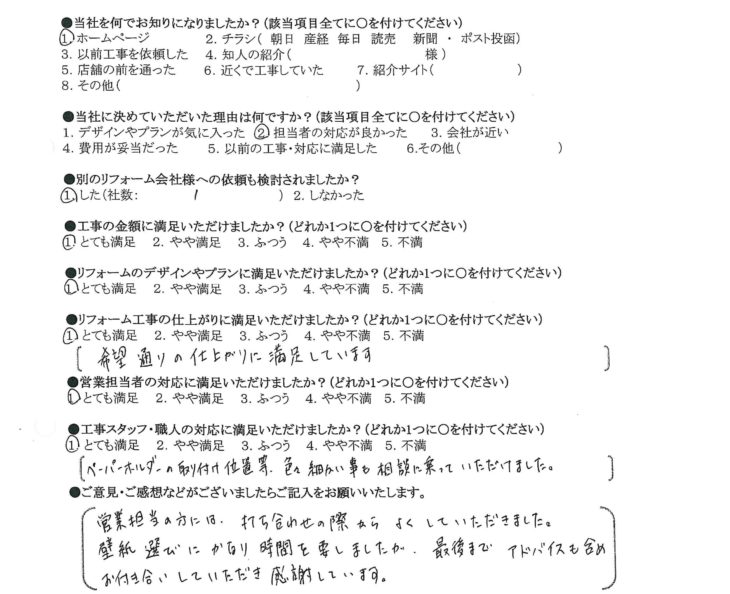 ●当社を何でお知りになりましたか?(該当項目全てに○を付けてください)
①ホームページ 2. チラシ( 朝日 産経 毎日 読売 新聞 ・ ポスト投函)
3. 以前工事を依頼した 4. 知人の紹介( 様 )
5. 店舗の前を通った 6. 近くで工事していた 7. 紹介サイト( )
8. その他( )
●当社に決めていただいた理由は何ですか?(該当項目全てに○を付けてください)
1. デザインやプランが気に入った ②担当者の対応が良かった 3. 会社が近い
4. 費用が妥当だった 5. 以前の工事・対応に満足した 6.その他( )
●別のリフォーム会社様への依頼も検討されましたか?
①した(社数: 1 ) 2. しなかった
●工事の金額に満足いただけましたか?(どれか1つに○を付けてください)
①とても満足 2. やや満足 3. ふつう 4. やや不満 5. 不満
●リフォームのデザインやプランに満足いただけましたか?(どれか1つに○を付けてください)
①とても満足 2. やや満足 3. ふつう 4. やや不満 5. 不満
●リフォーム工事の仕上がりに満足いただけましたか?(どれか1つに○を付けてください)
①とても満足 2. やや満足 3. ふつう 4. やや不満 5. 不満
[ 希望通りの仕上がりに満足しています ]
●営業担当者の対応に満足いただけましたか?(どれか1つに○を付けてください)
①とても満足 2. やや満足 3. ふつう 4. やや不満 5. 不満
●工事スタッフ・職人の対応に満足いただけましたか?(どれか1つに○を付けてください)
①とても満足 2. やや満足 3. ふつう 4. やや不満 5. 不満
[ペーパーホルダーの取付け位置等、色々細かい事も相談に乗っていただけました。 ]
●ご意見・ご感想などがございましたらご記入をお願いいたします。
営業担当の方には、打ち合わせの際からよくしていただきました。
壁紙選びにかなり時間を要しましたが、最後までアドバイスも含め
お付き合いしていただき感謝しています。